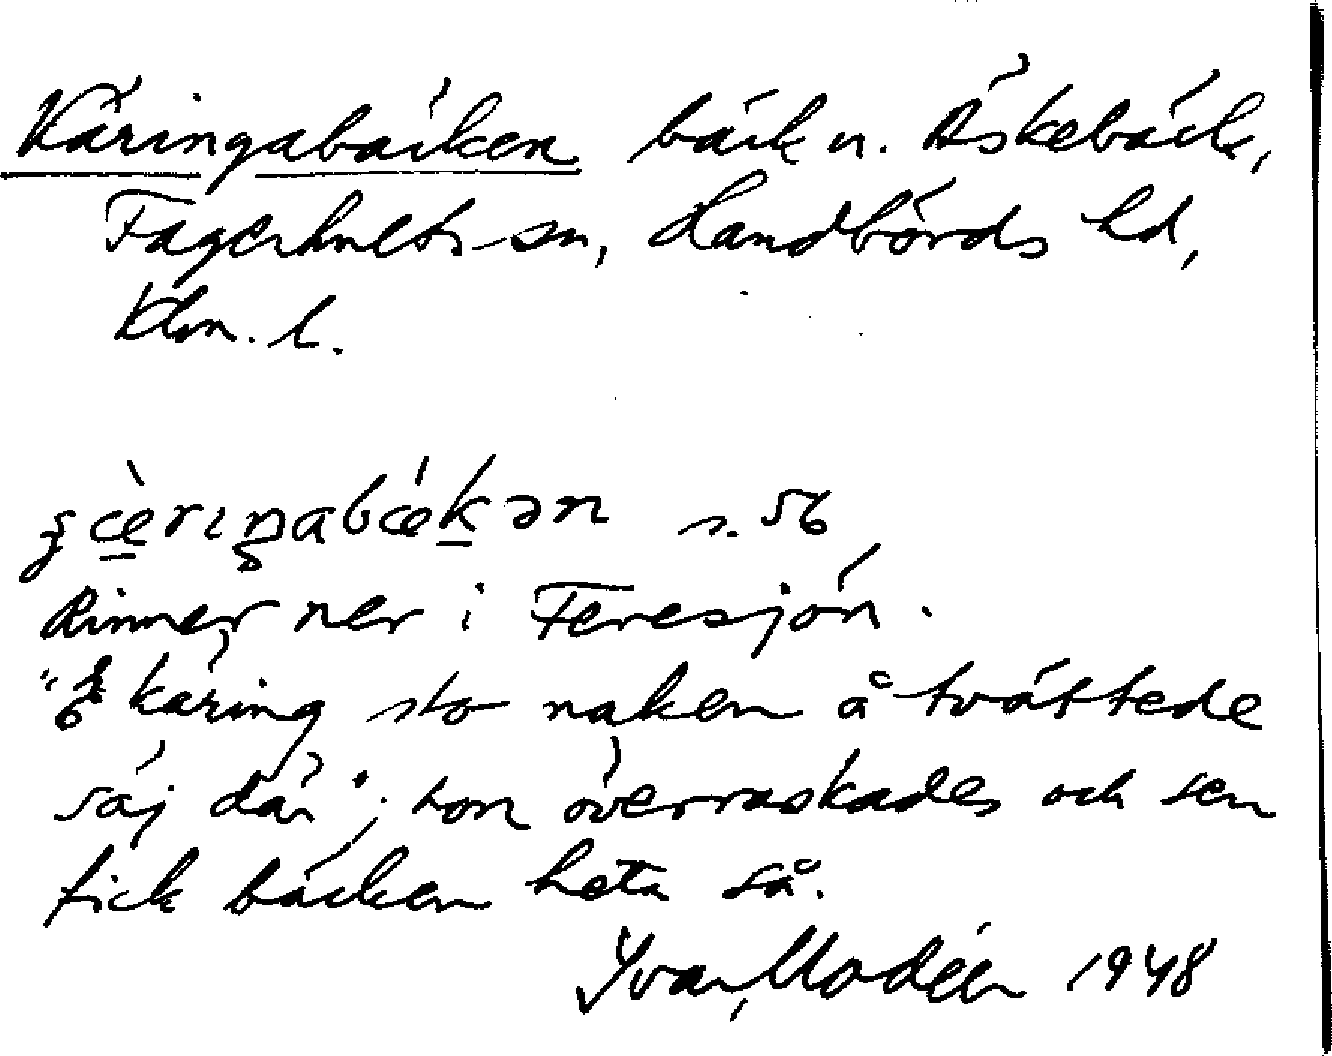 Käringabäcken bäck n. Äskebäck,
Fagerhults sn, Handbörds hd,
Klm. l.
s. 56
Rinner ner i Feresjön.
käring sto naken å tvättede
säj där"; hon överraskades och sen
fick bäcken heta så.
Yvar Modéer 1948